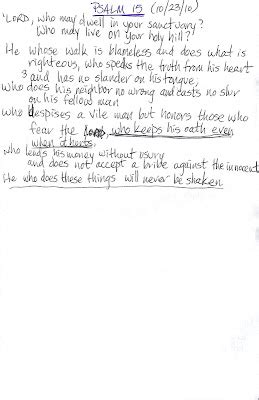 PSALM 15 (10/23/10)
'LORD, who may dwell in your sanctuary?
Who may live on your holy hill?
He whose walk is blameless and does what is
righteous, who speaks the truth from his heart
3 and has no slander on his tongue,
who does his neighbor no wrong and casts no slur
on his fellow man
who despises a vile man but honors those who
fear the Lord, who keeps his oath even
when it hurts,
who lends his money without usury
and does not accept a bribe against the innocent
He who does these things will never be shaken